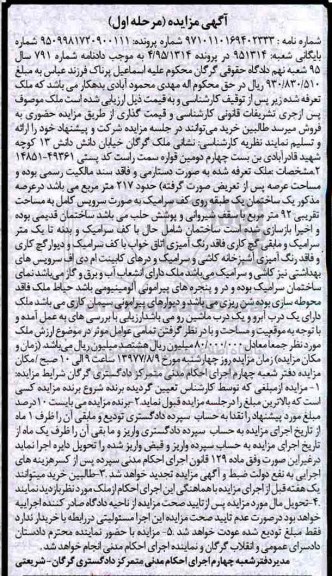 آگهی مزایده (مرحله اول)
شماره نامه: ۹۷۱۰۱۱۰۱۶۹۴۰۲۳۳۳ شماره پرونده: ۹۵۰۹۹۸۱۷۲۰۹۰۰۱۱۱ شماره
بایگانی شعبه: ۹۵۱۳۱۴ در پرونده ۴/۹۵/۱۳۱۴ به موجب دادنامه شماره ۷۹۱ سال
۹۵ شعبه نهم دادگاه حقوقی گرگان محکوم علیه اسماعیل پرناک فرزند عباس به مبلغ
۹۳۰/۸۳۰/۵۱۰ ریال در حق محکوم اله مهدی محمود آبادی بدهکار می باشد که ملک
تعرفه شده زیر پس از توقیف کارشناسی و به قیمت ذیل ارزیابی شده است ملک موصوف
پس ازجری تشریفات قانونی کارشناسی و قیمت گذاری از طریق مزایده حضوری به
فروش میرسد طالبین خرید می‌توانند در جلسه مزایده شرکت و پیشنهاد خود را ارائه
و تسلیم نمایند نظریه کارشناسی: نشانی ملک گرگان خیابان دانش دانش ۱۳ کوچه
شهید قادرآبادی بن بست چهارم دومین قواره سمت راست کد پستی ۴۹۳۶۱-۱۴۸۵۱
۲مشخصات: ملک تعرفه شده به صورت دستدارمی و فاقد سند مالکیت رسمی بوده و
مساحت عرصه پس از تعریض صورت گرفته) حدود ۲۱۷ متر مربع می باشد درعرصه
مذکور یک ساختمان یک طبقه روی کف سرامیک به صورت سرویس کامل به مساحت
تقریبی ۹۲ متر مربع با سقف شیروانی و پوشش حلب می باشد ساختمان قدیمی بوده
و اخیرا بازسازی شده است ساختمان شامل حال با کف سرامیک و بدنه تا یک متر
سرامیک و مابقی گچ کاری فاقد رنگ آمیزی اتاق خواب با کف سرامیک و دیوار گچ کاری
و فاقد رنگ آمیزی آشپزخانه کاشی و سرامیک و درهای کابینت ام دی اف سرویس های
بهداشتی نیز کاشی و سرامیک می‌باشد ملک دارای انشعاب آب و برق و گاز می‌باشد نمای
ساختمان سرامیک بوده و در و پنجره های پیرامونی آلومینیومی باشد حیاط ملک فاقد
محوطه سازی بوده شن ریزی می باشد و دیوارهای پیرامونی سیمان کاری می باشد ملک
دارای یک درب آبرو و یک درب ماشین رو می باشد ارزیابی با بررسی های به عمل آمده و
با توجه به موقعیت و مساحت و با در نظر گرفتن تمامی عوامل موثر در موضوع ارزش ملک
مورد نظر جمعا معادل ۸۰۰/۰۰۰/۰۰۰میلیون ریال هشتصد میلیون ریال می‌باشد (زمان و
مکان مزایده) زمان مزایده روز چهارشنبه مورخ ۱۳۹۷۷/۸/۹ ساعت ۹ الی ۱۰ صبح /مکان
مزایده دفتر شعبه چهارم اجرای احکام مدنی متمرکز دادگستری گرگان شرایط مزایده:
۱- مزایده ازمبلغی که توسط کارشناس تعیین گردیده برنده شروع برنده مزایده کسی
است که بالاترین مبلغ را در جلسه مزایده قبول نماید۲- برنده مزایده می بایست ۱۰درصد
مبلغ مورد پیشنهاد را نقدا به حساب سپرده دادگستری تودیع و مابقی آن را ظرف ۱ ماه
از تاریخ اجرای مزایده به حساب سپرده دادگستری واریز و مابقی آن را ظرف یک ماه از
تاریخ اجرای مزایده به حساب سپرده واریز و قبض واریز شده را تحویل دایره اجرا نماید
درغیر این صورت وفق ماده ۱۲۹ قانون اجرای احکام مدنی سپرده پس از کسر هزینه های
اجرایی به نفع دولت ضبط و آگهی مزایده تجدید خواهد شد. ۳-طالبین خرید میتوانند
یک هفته قبل از اجرای مزایده با هماهنگی این اجرای احکام از ملک مورد نظر بازدید نمایند
۴-تحویل مال مورد مزایده پس از تایید صحت مزایده از ناحیه دادگاه صادر کننده اجراییه
خواهد بود درصورت عدم تایید صحت مزایده این اجرا مسئولیتی دررابطه با خریدار ندارد
فقط مبلغ تودیع شده عودت خواهد شد .۵- مزایده با حضور نماینده محترم دادستان
دادسرای عمومی و انقلاب گرگان و نماینده اجرای احکام مدنی انجام خواهد شد.
مدیر دفتر شعبه چهارم اجرای احکام مدنی متمرکز دادگستری گرگان-شریعتی